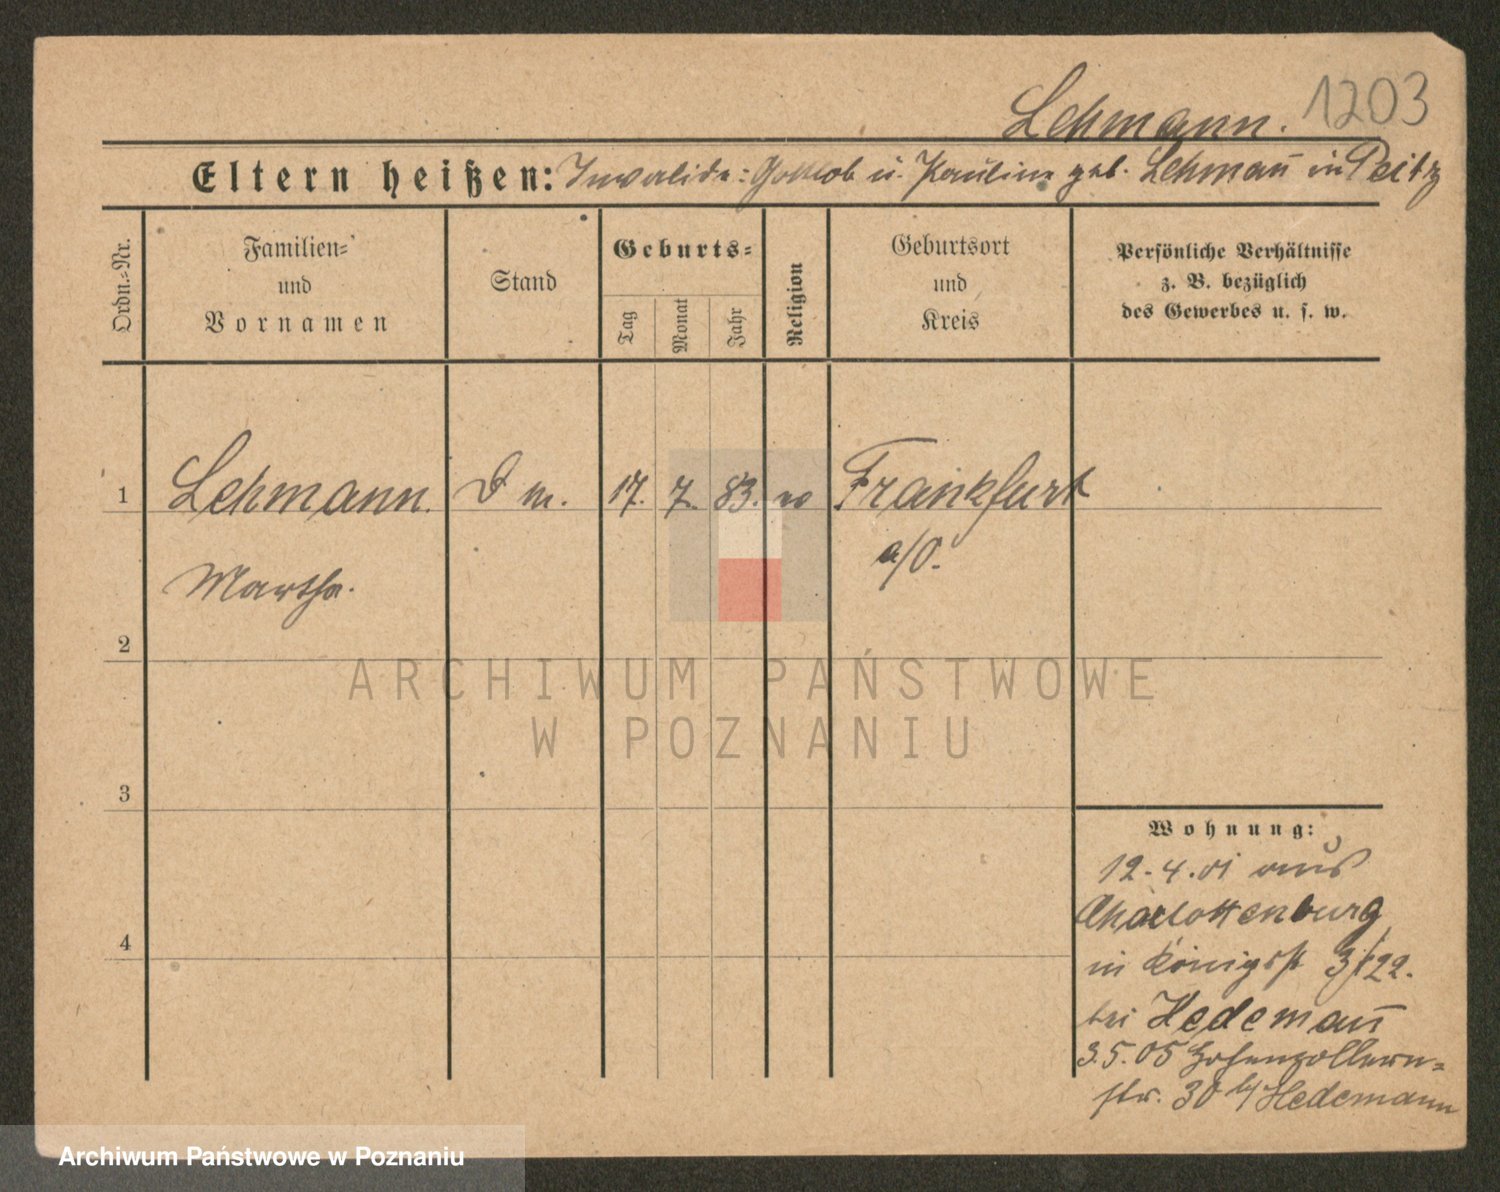 Lehmann. 1203
Eltern heißen: Invalide: Gottlob u. Pauline geb. Lehmañ in Peitz
Ordn.-Nr.
Familien-
und
Vornamen
Stand
Geburts-
Tag
Monat
Jahr
Religion
Geburtsort
und
Kreis
Persönliche Verhältnisse
z. B. bezüglich
des Gewerbes u. s. w.
1 Lehmann. D m. 17. 7. 83. Frankfurt
a/O.
Martha.
2
ARCHIWUM PAŃSTWOWE
W POZNANIU
3
Wohnung:
12.4.01 aus
Charlottenburg
4
in Königsst 22.
bei Hedemañ
3.5.05 Hohenzollern-
str. 30 b/ Hedemann
Archiwum Państwowe w Poznaniu